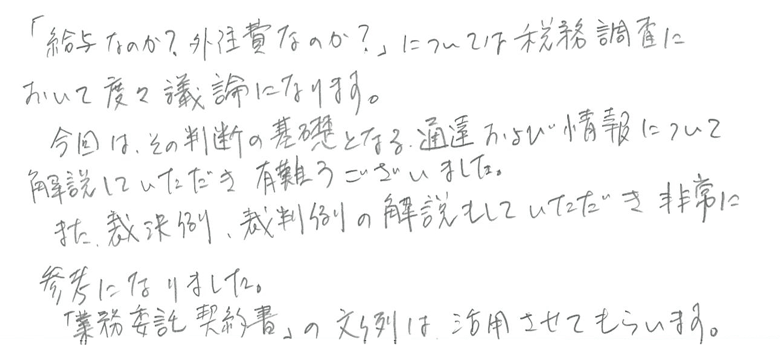 「給与なのか？外注費なのか？」については税務調査に
おいて度々議論になります。
今回は、その判断の基礎となる、通達および情報について
解説していただき有難うございました。
また、裁決例、裁判例の解説もしていただき非常に
参考になりました。
「業務委託契約書」の文例は、活用させてもらいます。